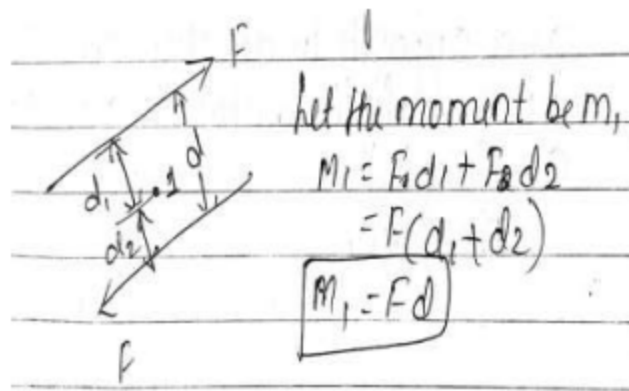 F
d
d₁
1
d₂
F
Let the moment be m₁
M₁ = F₁d₁ + F₂d₂
= F(d₁ + d₂)
M₁ = Fd